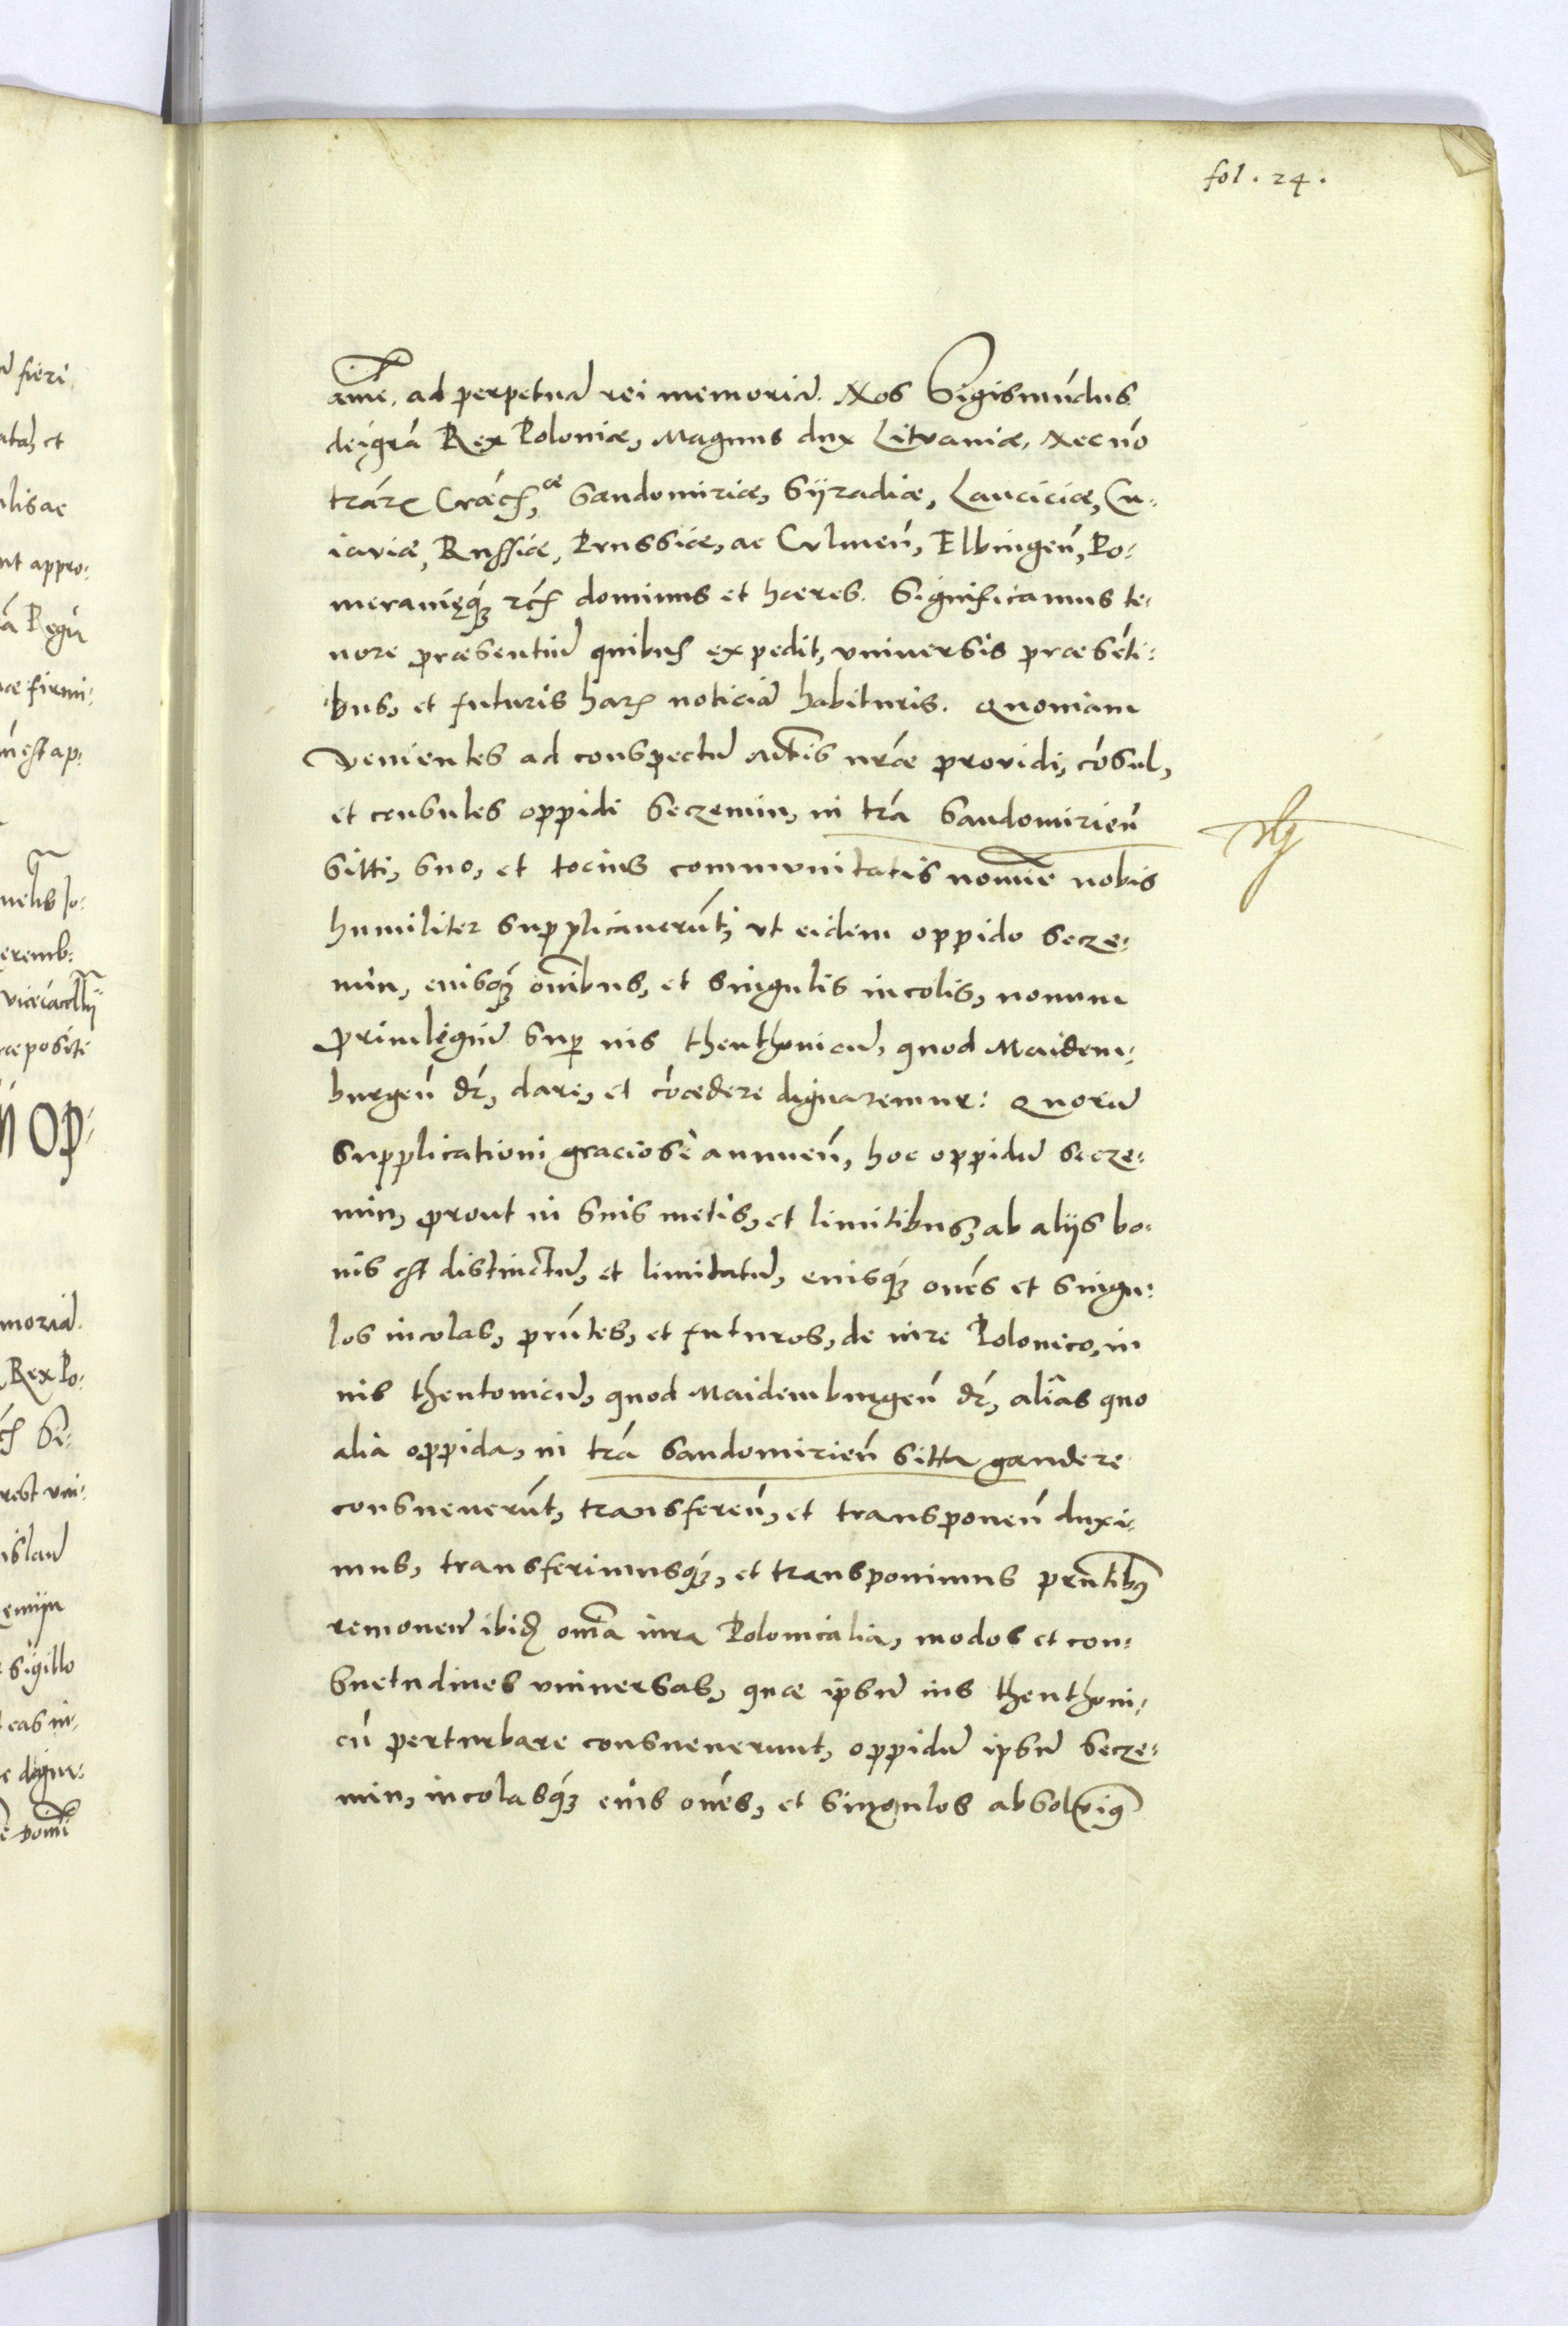 fol. 24.
amē. ad perpetuā rei memoriā. Nos Sigismūdus
dei grā Rex Poloniæ, Magnus dux Litvaniæ, Necnō
trār℟ Cracoꝭ, Sandomiriæ, Syradiæ, Lanciciæ, Cu-
iaviæ, Russiæ, Prussiæ, ac Culmeñ, Elbingeñ, Po-
meraniȩq́ꝫ ꝛcꝭ dominus et hæres. Significamus te-
nore præsentiū quibus expedit, vniversis præsēti-
bus, et futuris har℟ noticiā habituris. Quoniam
Venientes ad conspectū Mtis nr̄æ providi, cōsul,
et consules oppidi Seczemin, in tr̄a Sandomirieñ
sitti, suo, et tocius communitatis nomīe nobis
humiliter supplicauerūt, vt eidem oppido Secze-
min, euisq́ꝫ om̄ibus, et singulis incolis, nouum
Priuilegiū sup̱ ius theuthonicū, quod Maidem-
burgeñ dr̄, dare, et cōcedere dignaremur: Quorū
supplicationi graciosè annueñ, hoc oppidū Secze-
min, prout in suis metis, et limitibus, ab alijs bo-
nis est distinctū, et limitatū, euisq́ꝫ om̄es et singu-
los incolas, pr̄ntes, et futuros, de iure Polonico, in
ius theutonicū, quod Maidemburgeñ dr̄, aliâs quo
alia oppida, in tr̄a Sandomirieñ sitta gaudere
consueuerūt, transfereñ, et transponeñ duxi-
mus, transferimusq́ꝫ, et transponimus pr̄ntibꝰ
remouen̄ ibiđ om̄ia iura Polonicalia, modos et con-
suetudines vniuersas, quæ ipsū ius theuthoni-
cū perturbare consueuerunt, oppidū ipsū Secze-
min, incolasq́ꝫ eius om̄es, et singulos absolvimꝰ